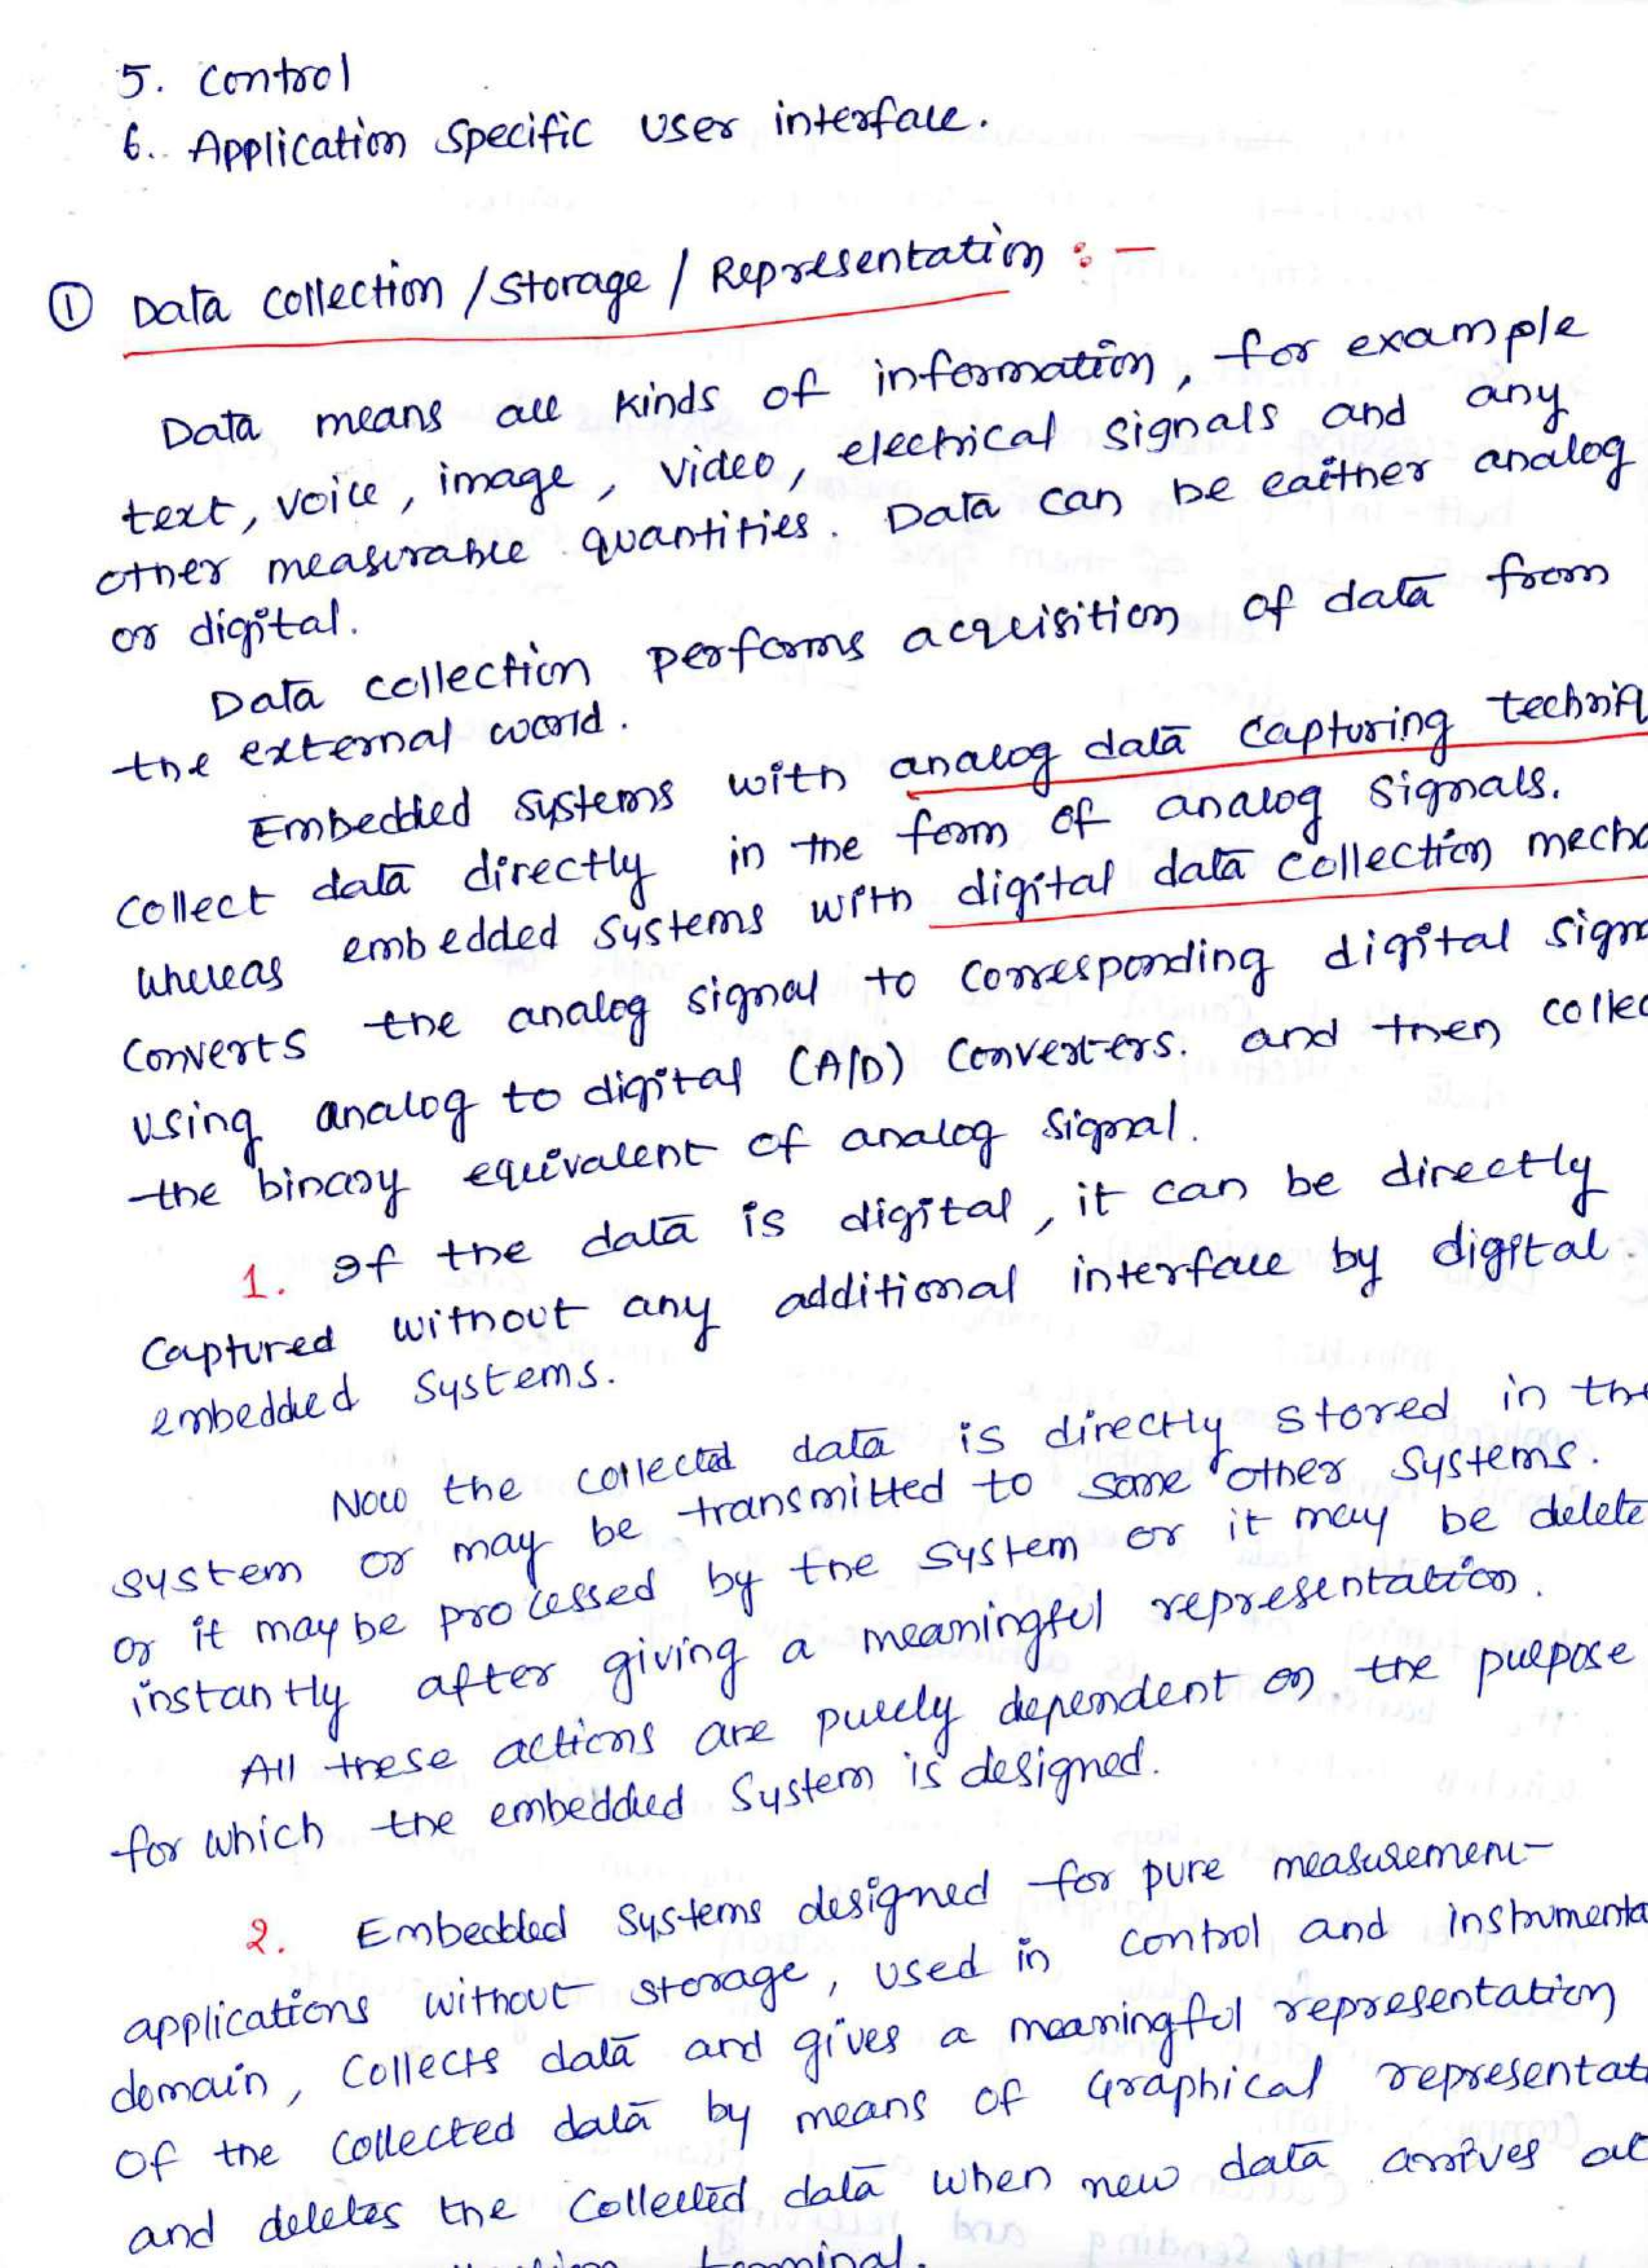 5. Control
6. Application Specific User interface.
① Data Collection / Storage / Representation :-
Data means all kinds of information, for example
text, voice, image, video, electrical signals and any
other measurable quantities. Data can be eaither analog
or digital.
Data collection performs acquisition of data from
the external world.
Embedded Systems with analog data Capturing techniq
Collect data directly in the form of analog Signals.
Whereas embedded Systems with digital data collection mecha
Converts the analog signal to Corresponding digital Signa
using analog to digital (A/D) Converters. and then collec
the binary equivalent of analog Signal.
1. If the data is digital, it can be directly
Captured without any additional interface by digital
embedded Systems.
Now the collected data is directly stored in the
system or may be transmitted to some other Systems.
or it may be processed by the System or it may be delete
instantly after giving a meaningful representation.
All these actions are purely dependent on the purpose
for which the embedded System is designed.
2. Embedded Systems designed for pure measurement
applications without storage, used in Control and instrumenta
domain, Collects data and gives a meaningful representation
Of the Collected data by means of Graphical representat
and deletes the Collected data when new data arrives at
terminal.